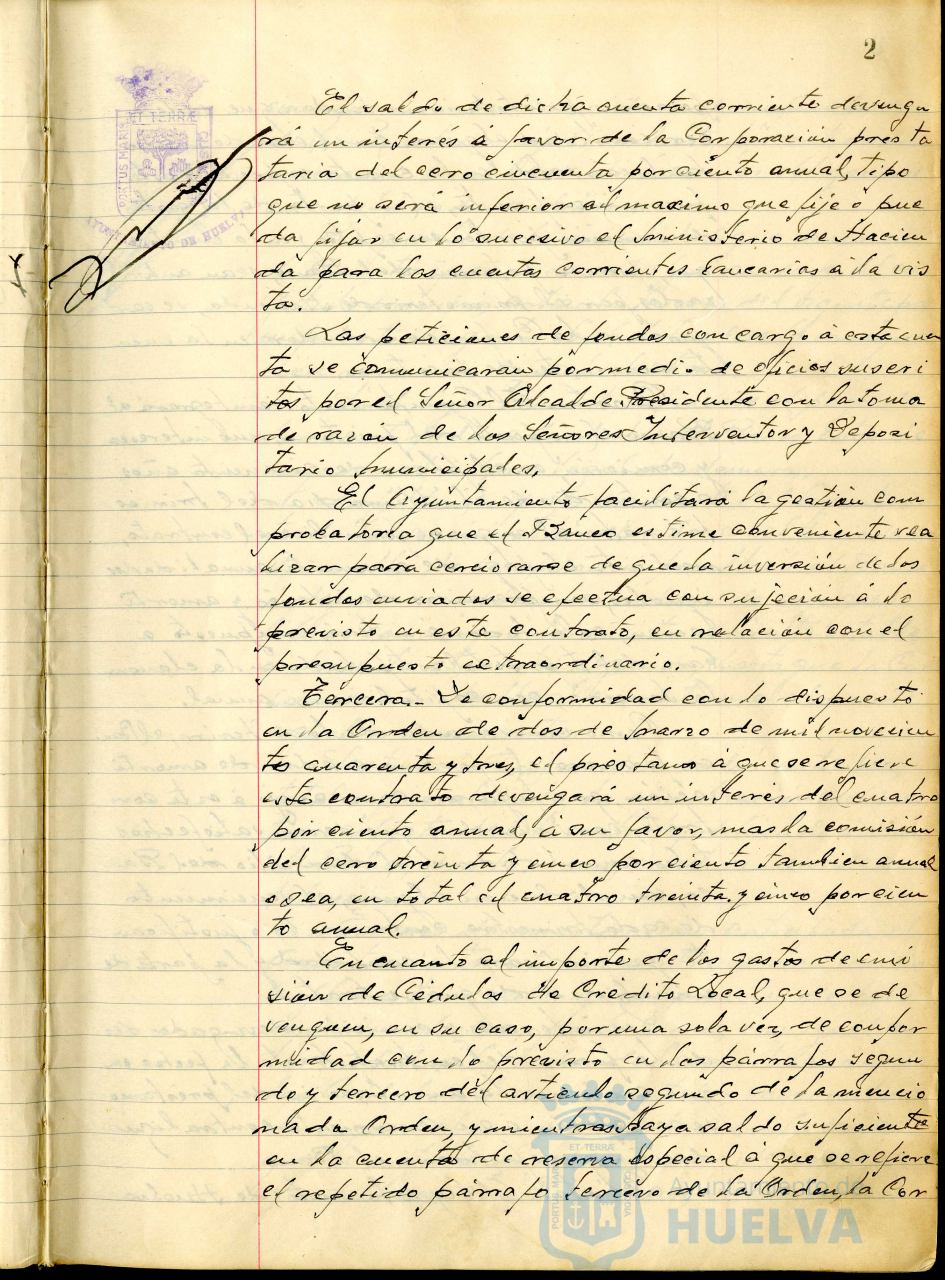 2
El saldo de dicha cuenta corriente devenga
rá un interés á favor de la Corporación presta
taria del cero cincuenta por ciento anual, tipo
que no será inferior al maximo que fije o pue
da fijar en lo sucesivo el Ministerio de Hacien
da para las cuentas corrientes bancarias á la vis
ta.
Las peticiones de fondos con cargo á esta cuen
ta se comunicarán por medio de oficios suscri
tos por el Señor Alcalde Presidente con la toma
de razón de los Señores Interventor y Deposi
tario municipales.
El Ayuntamiento facilitará la gestión com
probatoria que el Banco estime conveniente rea
lizar para cerciorarse de que la inversión de los
fondos enviados se efectua con sujeción á lo
previsto en este contrato, en relación con el
presupuesto extraordinario.
Tercera.- De conformidad con lo dispuesto
en la Orden de dos de Marzo de mil novecien
tos cuarenta y tres, el préstamo á que se refiere
este contrato devengará un interés del cuatro
por ciento anual, á su favor, mas la comisión
del cero treinta y cinco por ciento tambien anual
o sea, en total el cuatro treinta y cinco por cien
to anual.
En cuanto al importe de los gastos de emi
sión de Cédulas de Crédito Local, que se de
venguen, en su caso, por una sola vez, de confor
midad con lo previsto en los párrafos segun
do y tercero del artículo segundo de la mencio
nada Orden, y mientras haya saldo suficiente
en la cuenta de reserva especial á que se refiere
el repetido párrafo tercero de la Orden, la Cor
ET TERRÆ
PORTUS MARIS
AYUNTAMIENTO DE HUELVA
ET TERRÆ
PORTUS MARIS
CUSTODIA
Ayuntamiento de
HUELVA